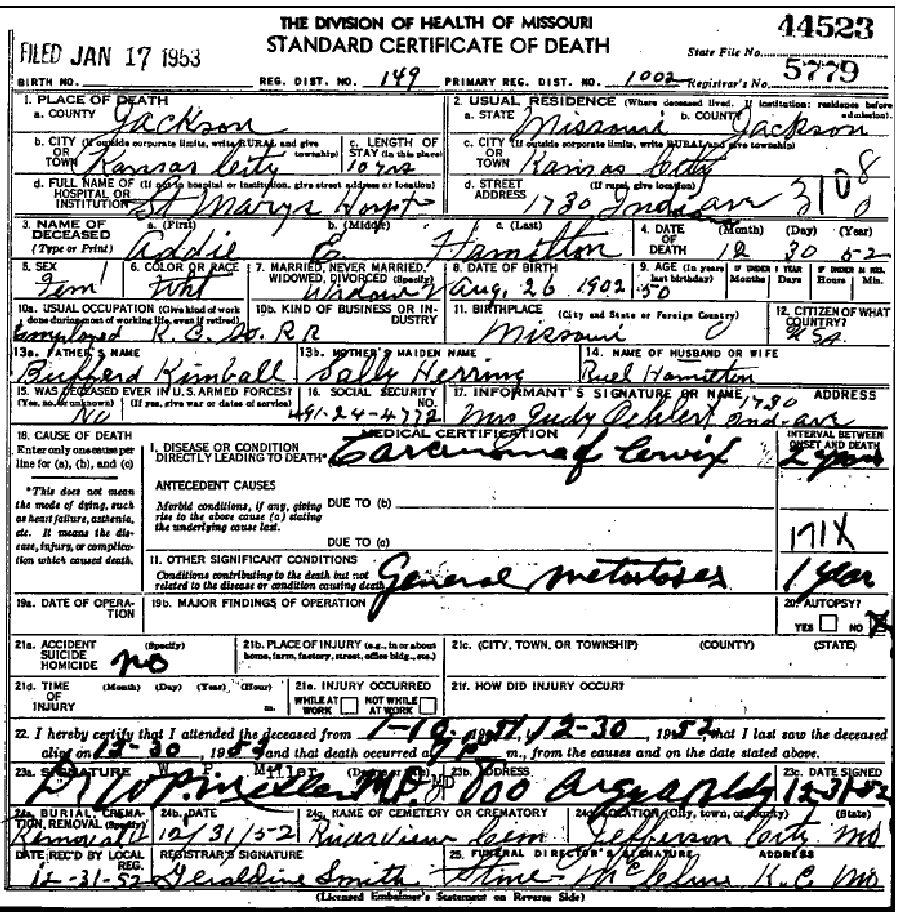 THE DIVISION OF HEALTH OF MISSOURI
STANDARD CERTIFICATE OF DEATH
FILED JAN 17 1953
State File No. 44523
BIRTH NO. REG. DIST. NO. 149 PRIMARY REG. DIST. NO. 1002 Registrar's No. 5779
1. PLACE OF DEATH
a. COUNTY Jackson
2. USUAL RESIDENCE (Where deceased lived. If institution: residence before admission).
a. STATE Missouri b. COUNTY Jackson
b. CITY (If outside corporate limits, write RURAL and give township) OR TOWN Kansas City
c. LENGTH OF STAY (in this place) 10 yrs
c. CITY (If outside corporate limits, write RURAL and give township) OR TOWN Kansas City
d. FULL NAME OF (If not in hospital or institution, give street address or location) HOSPITAL OR INSTITUTION St Marys Hospt
d. STREET ADDRESS (If rural, give location) 1730 Indian ave 3108
3. NAME OF DECEASED (Type or Print) a. (First) Addie b. (Middle) E c. (Last) Hamilton
4. DATE OF DEATH (Month) (Day) (Year) 12 30 52
5. SEX Fem
6. COLOR OR RACE Wht
7. MARRIED, NEVER MARRIED, WIDOWED, DIVORCED (Specify) Widow
8. DATE OF BIRTH Aug. 26 1902
9. AGE (In years last birthday) 50 IF UNDER 1 YEAR Months Days IF UNDER 24 HRS. Hours Min.
10a. USUAL OCCUPATION (Give kind of work done during most of working life, even if retired) Employed
10b. KIND OF BUSINESS OR INDUSTRY K. C. So. RR
11. BIRTHPLACE (City and State or Foreign Country) Missouri
12. CITIZEN OF WHAT COUNTRY? USA
13a. FATHER'S NAME Bufferd Kimball
13b. MOTHER'S MAIDEN NAME Sally Herring
14. NAME OF HUSBAND OR WIFE Ruel Hamilton
15. WAS DECEASED EVER IN U.S. ARMED FORCES? (Yes, no, or unknown) (If yes, give war or dates of service) No
16. SOCIAL SECURITY NO. 491-24-4772
17. INFORMANT'S SIGNATURE OR NAME ADDRESS Mrs Judy Oehlert 1730 Ind. ave
18. CAUSE OF DEATH
Enter only one cause per line for (a), (b), and (c)
MEDICAL CERTIFICATION
INTERVAL BETWEEN ONSET AND DEATH
I. DISEASE OR CONDITION DIRECTLY LEADING TO DEATH* Carcinoma of Cervix 2 years
*This does not mean the mode of dying, such as heart failure, asthenia, etc. It means the disease, injury, or complication which caused death.
ANTECEDENT CAUSES
Morbid conditions, if any, giving rise to the above cause (a) stating the underlying cause last.
DUE TO (b)
DUE TO (c)
171X
II. OTHER SIGNIFICANT CONDITIONS
Conditions contributing to the death but not related to the disease or condition causing death. General metastases 1 year
19a. DATE OF OPERATION
19b. MAJOR FINDINGS OF OPERATION
20. AUTOPSY? YES NO X
21a. ACCIDENT SUICIDE HOMICIDE (Specify) no
21b. PLACE OF INJURY (e.g., in or about home, farm, factory, street, office bldg., etc.)
21c. (CITY, TOWN, OR TOWNSHIP) (COUNTY) (STATE)
21d. TIME OF INJURY (Month) (Day) (Year) (Hour) m.
21e. INJURY OCCURRED WHILE AT WORK NOT WHILE AT WORK
21f. HOW DID INJURY OCCUR?
22. I hereby certify that I attended the deceased from 1-10, 1951, 12-30, 1952, that I last saw the deceased
alive on 12-30, 1952, and that death occurred at m., from the causes and on the date stated above.
W P Miller
23a. SIGNATURE Dr W P Miller M.D. MD
23b. ADDRESS Argyle Bldg
23c. DATE SIGNED 12-31-52
24a. BURIAL, CREMATION, REMOVAL (Specify) Removal
24b. DATE 12/31/52
24c. NAME OF CEMETERY OR CREMATORY Riverview Cem
24d. LOCATION (City, town, or county) (State) Jefferson City Mo
DATE REC'D BY LOCAL REG. 12-31-52
REGISTRAR'S SIGNATURE Geraldine Smith
25. FUNERAL DIRECTOR'S SIGNATURE ADDRESS Stine-McClure K.C. Mo
(Licensed Embalmer's Statement on Reverse Side)